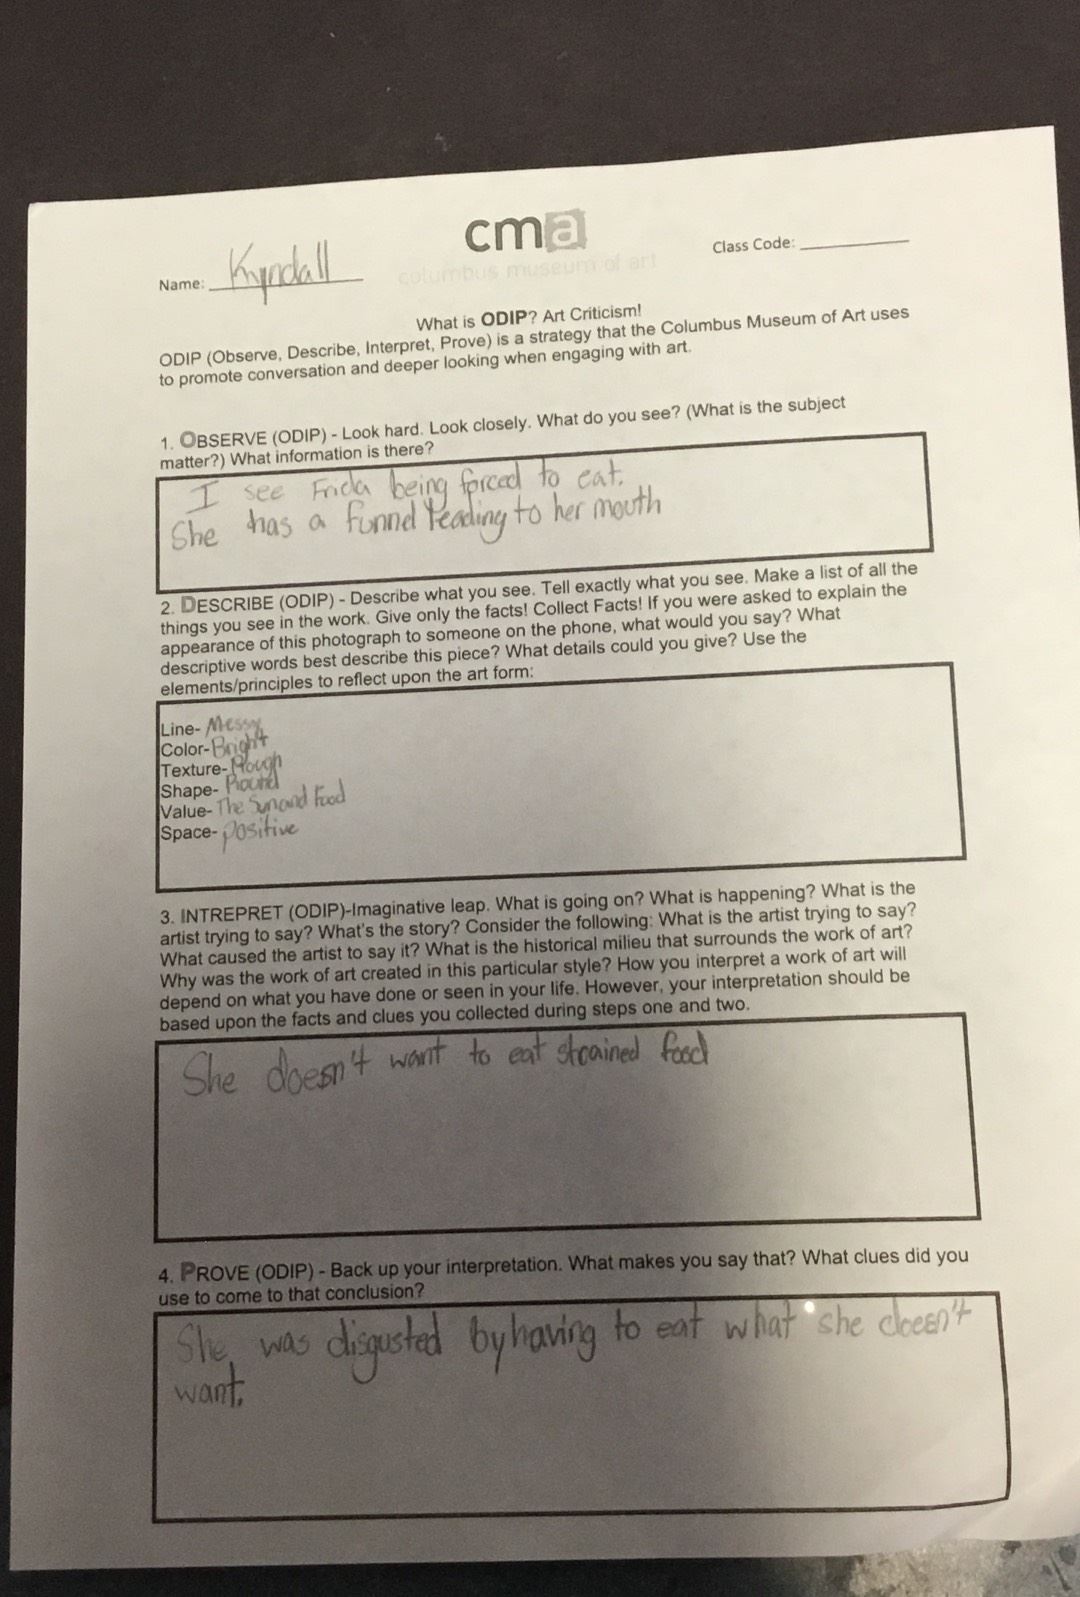 cma
columbus museum of art
Name: Kyndall
Class Code:
What is ODIP? Art Criticism!
ODIP (Observe, Describe, Interpret, Prove) is a strategy that the Columbus Museum of Art uses
to promote conversation and deeper looking when engaging with art.
1. OBSERVE (ODIP) - Look hard. Look closely. What do you see? (What is the subject
matter?) What information is there?
I see Frida being forced to eat.
She has a funnel leading to her mouth
2. DESCRIBE (ODIP) - Describe what you see. Tell exactly what you see. Make a list of all the
things you see in the work. Give only the facts! Collect Facts! If you were asked to explain the
appearance of this photograph to someone on the phone, what would you say? What
descriptive words best describe this piece? What details could you give? Use the
elements/principles to reflect upon the art form:
Line- Messy
Color- Bright
Texture- Rough
Shape- Round
Value- The Sun and Food
Space- positive
3. INTREPRET (ODIP)-Imaginative leap. What is going on? What is happening? What is the
artist trying to say? What's the story? Consider the following: What is the artist trying to say?
What caused the artist to say it? What is the historical milieu that surrounds the work of art?
Why was the work of art created in this particular style? How you interpret a work of art will
depend on what you have done or seen in your life. However, your interpretation should be
based upon the facts and clues you collected during steps one and two.
She doesn't want to eat strained food
4. PROVE (ODIP) - Back up your interpretation. What makes you say that? What clues did you
use to come to that conclusion?
She was disgusted by having to eat what she doesn't
want.